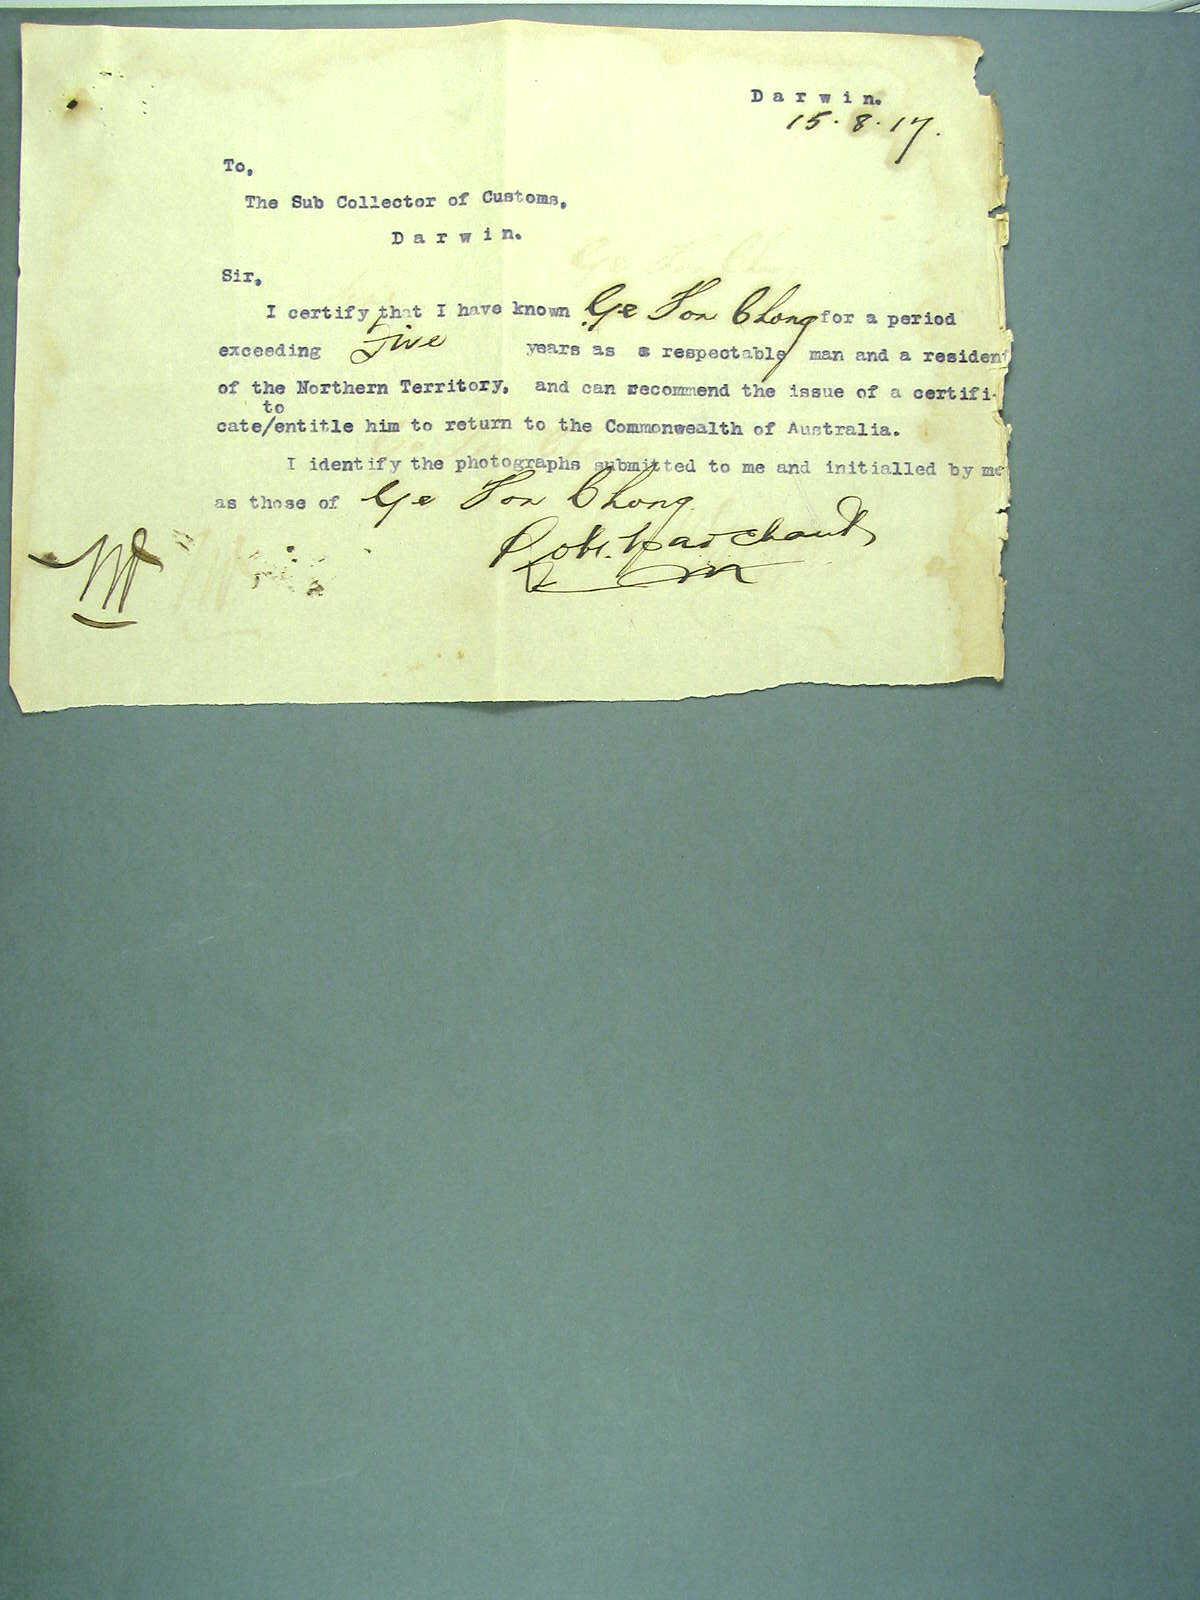 Darwin.
15.8.17.
To,
The Sub Collector of Customs,
Darwin.
Sir,
I certify that I have known Ge Hon Chong for a period
exceeding Five years as a respectable man and a resident
of the Northern Territory, and can recommend the issue of a certifi-
to
cate/entitle him to return to the Commonwealth of Australia.
I identify the photographs submitted to me and initialled by me
as those of Ge Hon Chong
Robt. Marchant